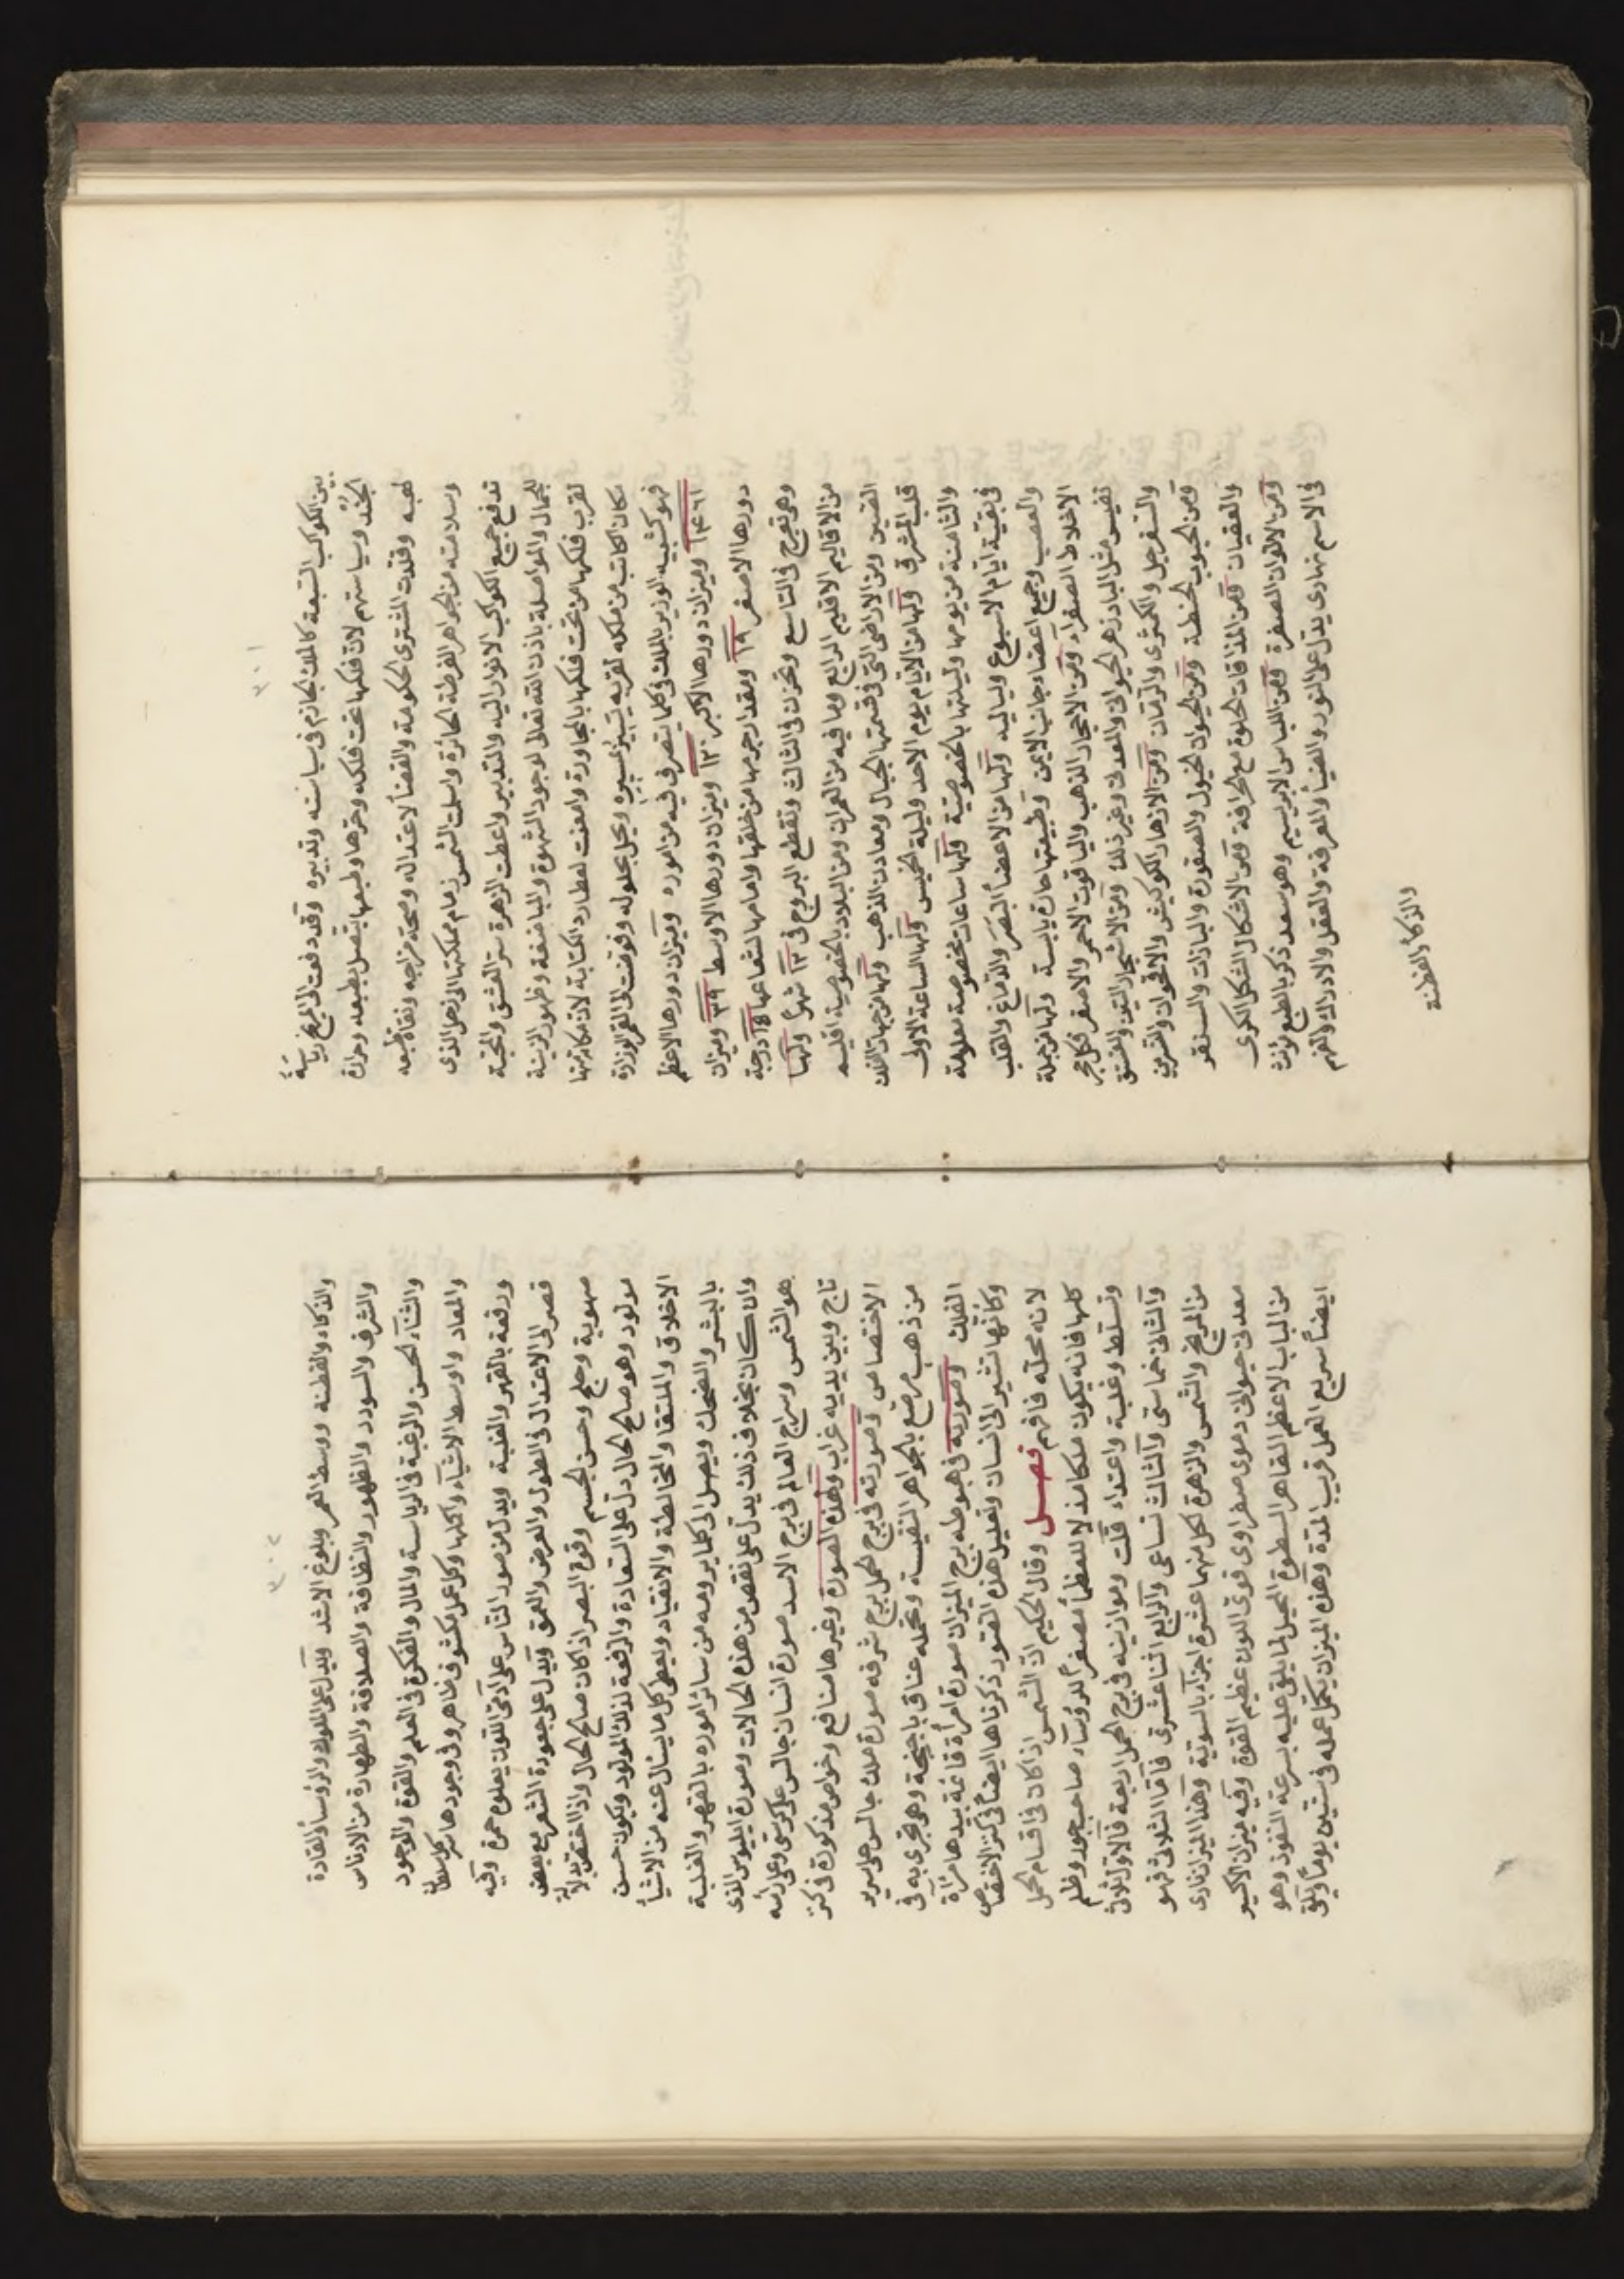 ٣٠١
بين الكواكب السبعة كالملك الحازم في سياسته وتدبيره وقد دفعت الى المريخ رياسة
الجند وسياستهم لان فلكها تحت فلكه وحرها وطبعها يتصل بطبعه وحرارة
لهبه وقلدت المشترى الحكومة والقضا لاعتداله وصحة مزاجه ونقاء طبعه
وسلامته من الجواهر الفرطة الجائرة واسلمت الشمس زمام مملكتها الى زحل الذى
تدفع جميع الكواكب الانوار اليه والتدبير واعطت الزهرة ستر العشق والمحبة
للجمال والمواصلة باذن الله تعالى لوجود الشهوة والمباضعة وظهور الزينة
لقرب فلكها من تحت فلكها بالمجاورة وامعنت لعطارد الكتابة لان مكانتها
مكان الكاتب من ملكه لقربه يسير بمسيره ويحل بحلوله وفوضت الى القمر الوزارة
فهو كشبيه الوزير بالملك في كلما يتصرف فيه من اموره وميزان دورها الاعظم
١٤٦١ وميزان دورها الاكبر ١٢٠ وميزان دورها الاوسط ٣٩ وميزان
دورها الاصغر ١٩ ومقدار جرمها من خلفها وامامها لشعاعها ١٥ درجة
وهى تفرح في التاسع وتحزن في الثالث وتقطع البروج في ١٢ شهرا ولها
من الاقاليم الاقليم الرابع وما فيه من العمران ومن البلاد بالخصوصية اقليم
الصين ومن الاراضى التى في قسمتها الجبال ومعادن الذهب ولها من جهات الفلك
قلب المشرق ولها من الايام يوم الاحد وليلة الخميس ولها الساعة الاولى
والثامنة من يومها وليلتها بالخصوصية ولها ساعات مخصوصة معلومة
في بقية ايام الاسبوع ولياليه ولها من الاعضا البصر والدماغ والقلب
والعصب وجميع اعضاء جانب الايمن وطبيعتها حارة يابسة ولها من جملة
الاخلاط الصفراء ومن الاحجار الذهب والياقوت الاحمر والاصفر وكل حجر
نفيس مثل البادزهر الحيوانى والمعدنى وغير ذلك ومن الاشجار التين والفستق
والسفرجل والكمثرى والرمان ومن الازهار الكوكبش والاقحوان والنسرين
ومن الحبوب الحنطة ومن الحيوان الخيول والصقورة والبازات والسنقر
والعقبان ومن المذاقات الحلوة مع الحرافة ومن الاشكال الشكل الكرى
ومن الالوان الصفرة ومن اللباس الابريسم وهو سعد ذكر بالطبع مؤنث
في الاسم نهارى يدل على النور والضيا والمعرفة والعقل والادراك والفهم
والذكا والفطنة
٣٠٢
والذكاء والفطنة ووسط العمر وبلوغ الاشد ويدل على الملوك والرؤسا والقادة
والشرف والسودد والظهور والنظافة والصلافة والطهارة من الادناس
والثناء الحسن والرغبة في الرياسة والمال والفكرة في العلم والقوة والوجود
والمعاد واوسط الاشياء وكلها وكل عمل مكشوف ظاهر وفى وجودها مركز وسطا
ورفعة بالقهر والغلبة ويدل من صور الناس على ادمى اللون يعلوه حمرة وفيه
قصر الى الاعتدال في الطول والعرض والعمق ويدل على جعودة الشعر مع بعض
صهوبة وجلح وحسن الجسم وقوة البصر اذا كان صالح الحال واذا اختص بدلالة
مولود وهو صالح الحال دل على السعادة والرفعة لذلك المولود ويكون حسن
الاخلاق والملتقا والمخالطة والانقياد ويعطى كل ما يسال عنه من الاشيا
بالبشر والضحك ويصل الى كلما يرومه من سائر اموره بالقهر والغلبة
وان كان بخلاف ذلك يدل على نقص من هذه الحالات وصورة ايليوس الذى
هو الشمس وسراج العالم في برج الاسد صورة انسان جالس على كرسى وعلى راسه
تاج وبين يديه غراب ولهذه الصورة وغيرها منافع وخواص مذكورة في كنز
الاختصاص وصورته في برج الحمل برج شرفه صورة ملك جالس على سرير
من ذهب مرصع بالجواهر النفيسة وتحمله عناق باجنحة وهى تجرى به في
الفلك وصورته في هبوطه برج الميزان صورة امراة قائمة بيدها مراة
وكأنها تشير الى انسان وتعليل هذه الصور ذكرناها ايضا في كنز الاختصاص
لانه محله فافهم فصل وقال الحكيم ان الشمس اذا كان في اقسام الحمل
كلها فانه يكون مكامذلا للعظما مصغرا للرؤساء صاحب جود وظلم
وتسلط وغلبة واعتداء قلت وموازينه في برج الحمل اربعة فالاول ثلاثى
والثانى خماسى والثالث تساعى والرابع اثنا عشرى فاما الثلاثى فهو
من المريخ والشمس والزهرة لكل منهما عشرة اجزآء بالسوية وهذا الميزان نارى
معدنى حيوانى دموى صفراوى قوى اللون عظيم القوة وفيه ميزان الاكسير
من الباب الاعظم القاهر السطوة المحيل لما يلقى عليه بسرعة النفوذ وهو
ايضا سريع العمل قريب المدة وهذه الميزان يكمل عمله في ستين يوما ويلقى